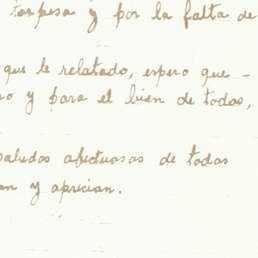 torpesa y por la falta de
que le relatado, espero que -
o y para el bien de todos,
saludos afectuosos de todos
an y aprecian.